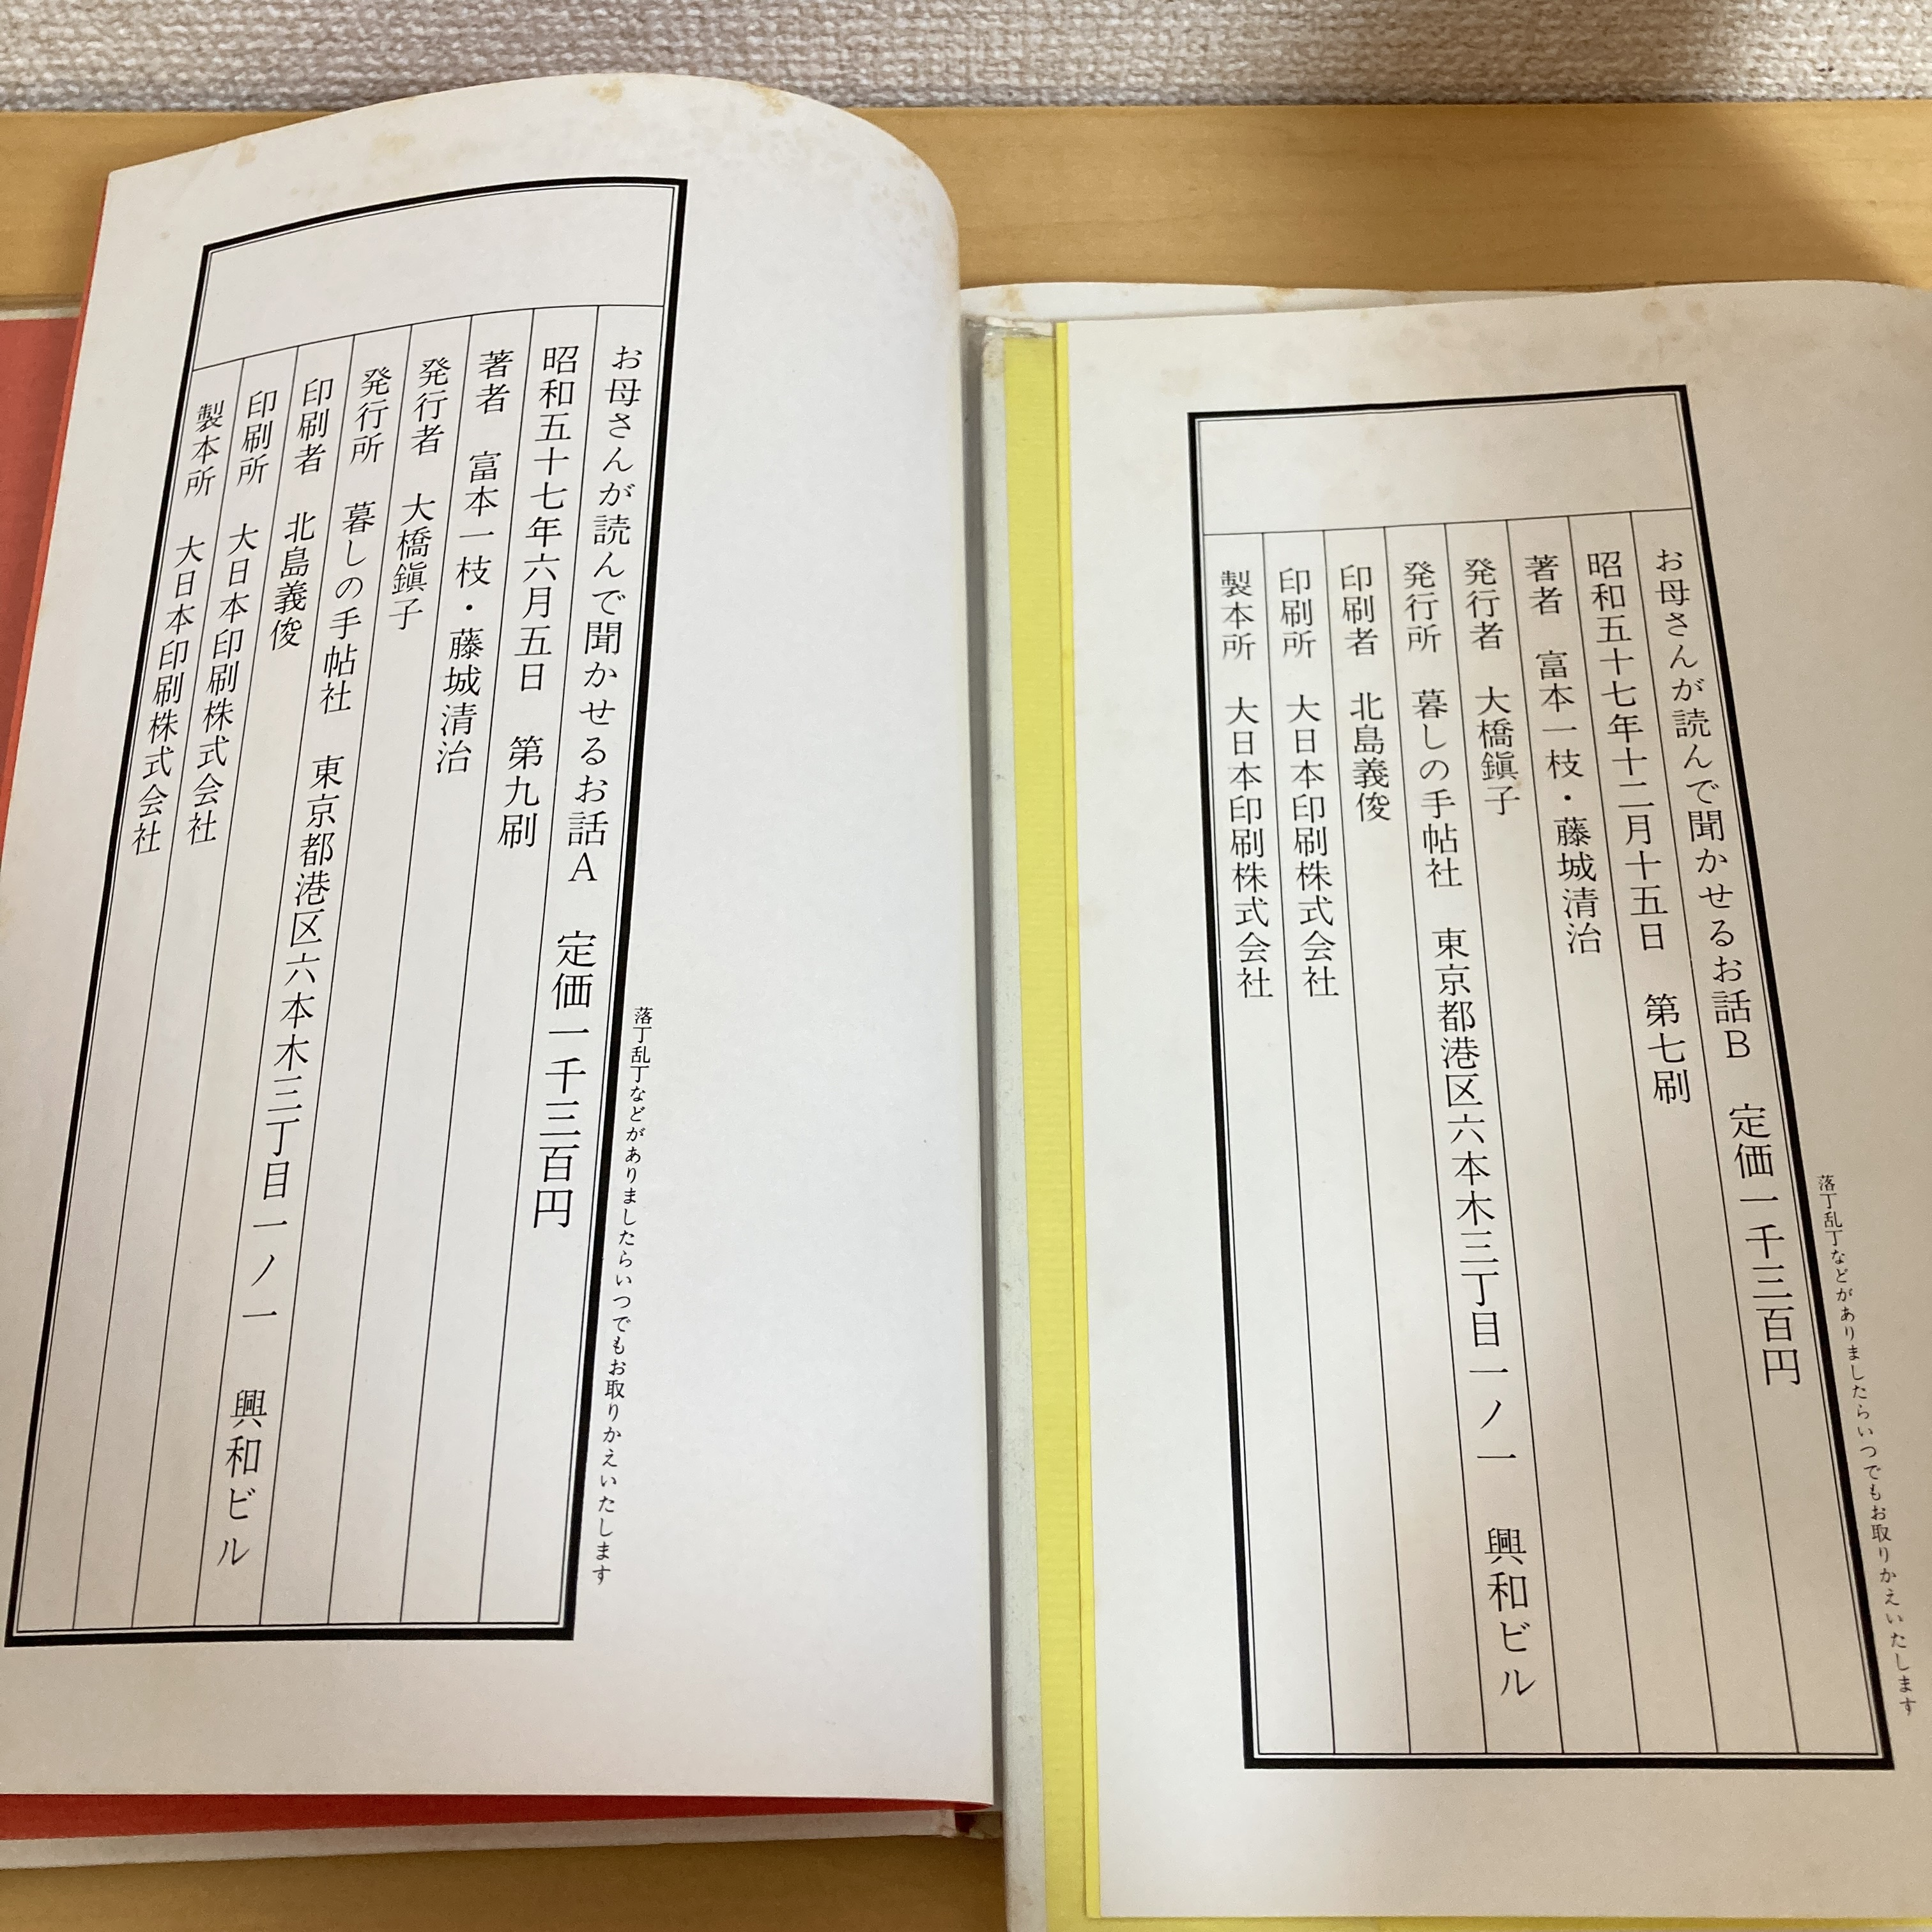 落丁乱丁などがありましたらいつでもお取りかえいたします
お母さんが読んで聞かせるお話A 定価一千三百円
昭和五十七年六月五日 第九刷
著者 富本一枝・藤城清治
発行者 大橋鎭子
発行所 暮しの手帖社 東京都港区六本木三丁目一ノ一 興和ビル
印刷者 北島義俊
印刷所 大日本印刷株式会社
製本所 大日本印刷株式会社
落丁乱丁などがありましたらいつでもお取りかえいたします
お母さんが読んで聞かせるお話B 定価一千三百円
昭和五十七年十二月十五日 第七刷
著者 富本一枝・藤城清治
発行者 大橋鎭子
発行所 暮しの手帖社 東京都港区六本木三丁目一ノ一 興和ビル
印刷者 北島義俊
印刷所 大日本印刷株式会社
製本所 大日本印刷株式会社